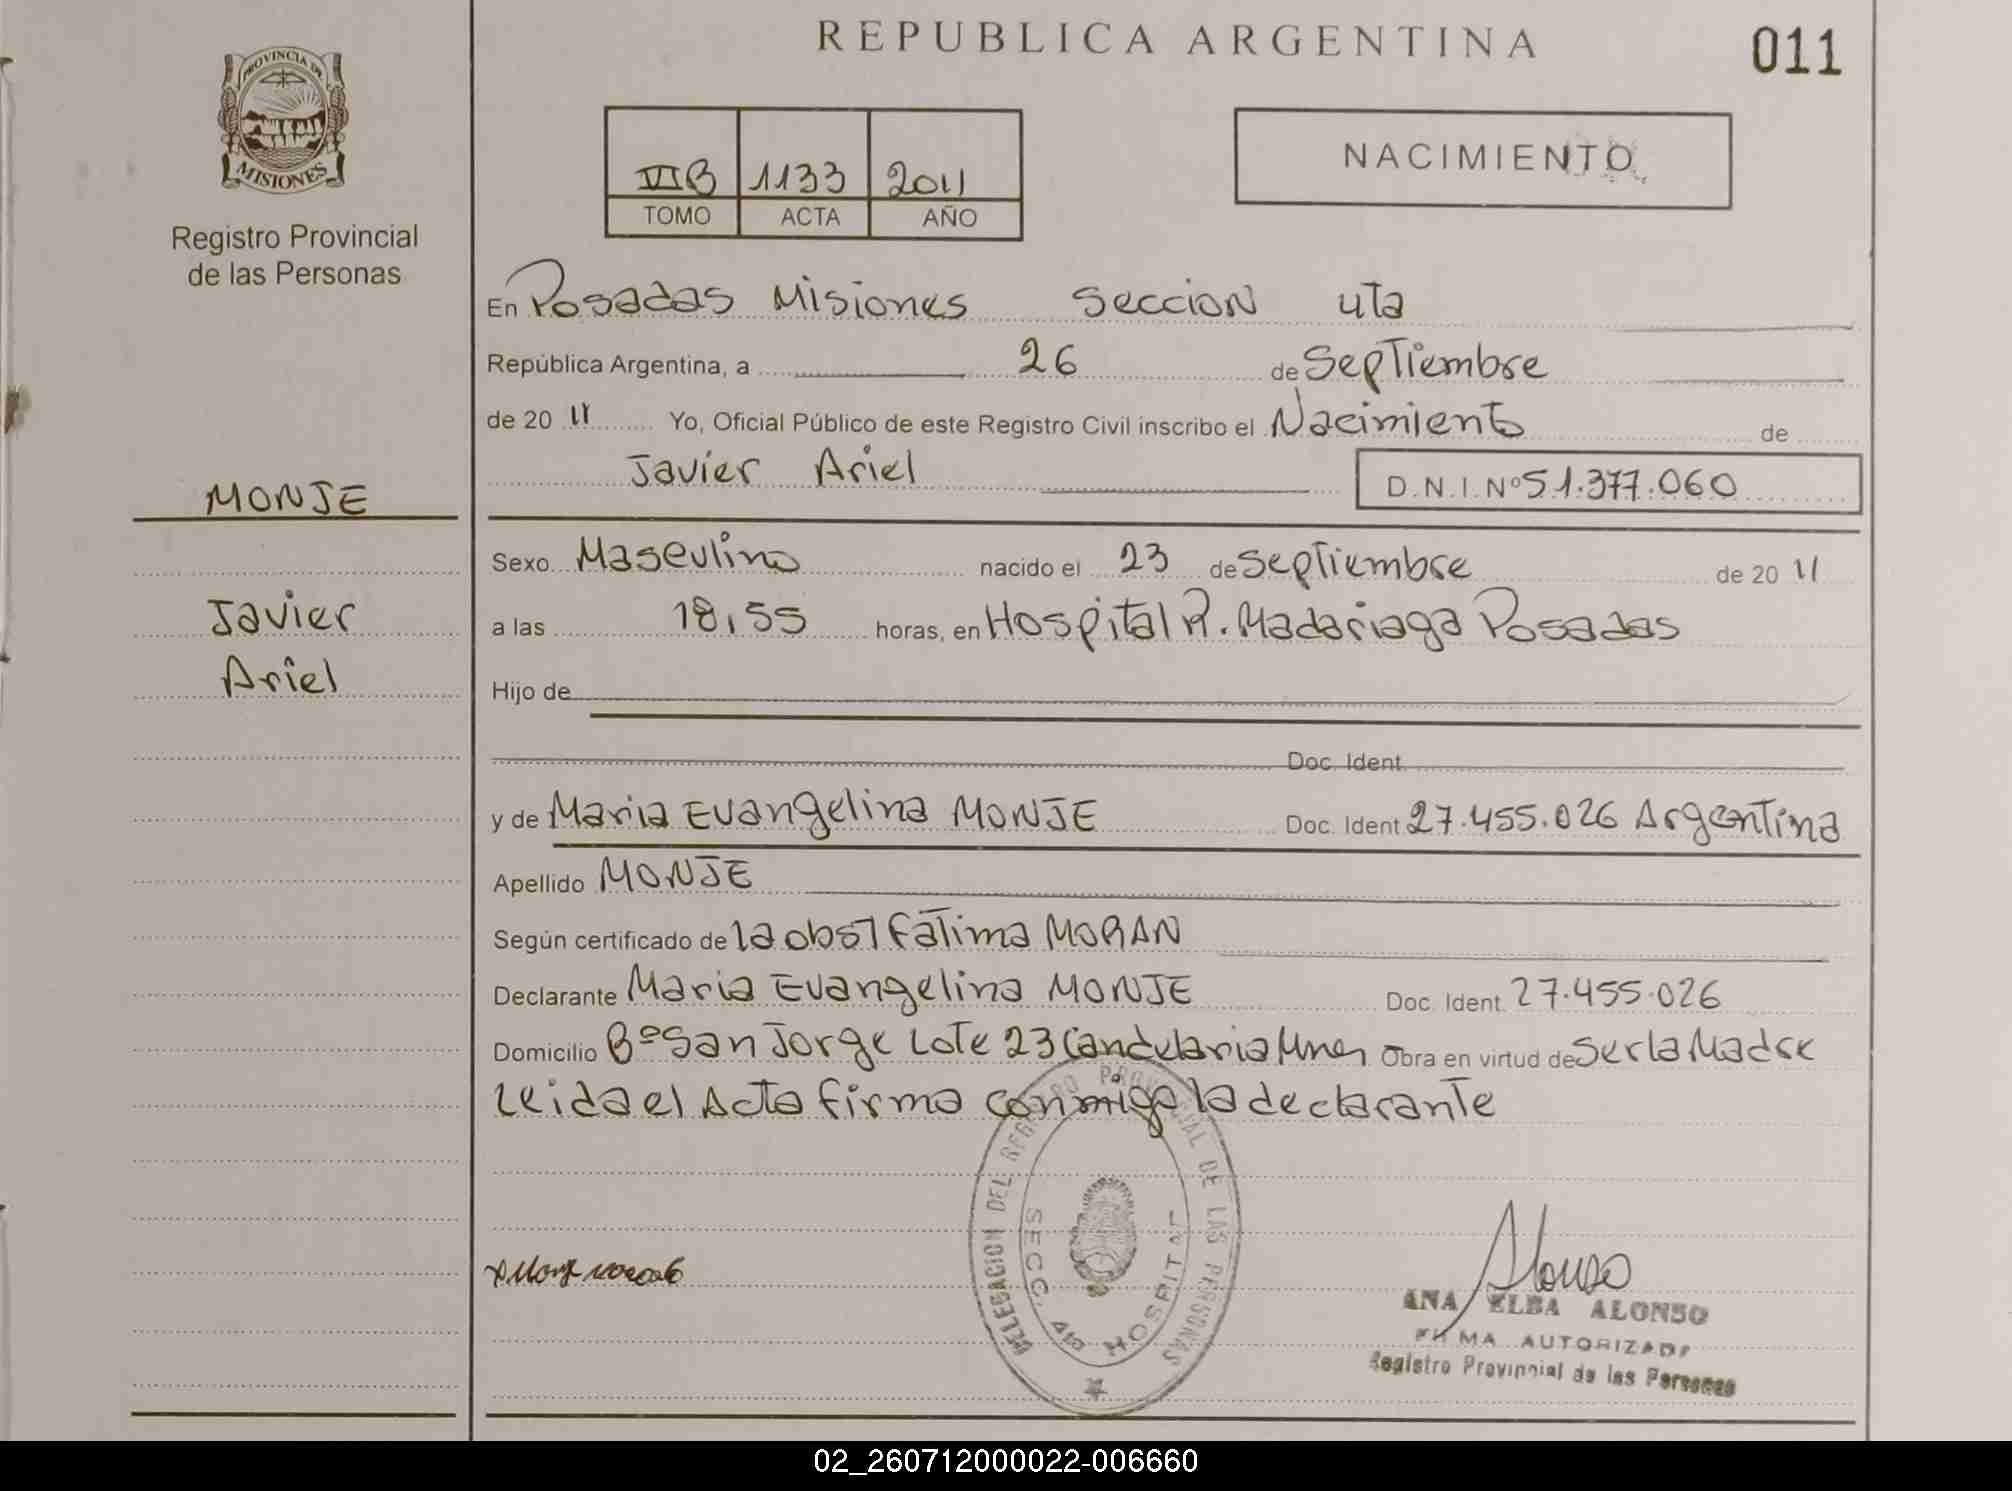 REPUBLICA ARGENTINA
011
PROVINCIA DE
MISIONES
Registro Provincial
de las Personas
VIB 1133 2011
TOMO ACTA AÑO
NACIMIENTO
En Posadas Misiones Seccion 4ta
República Argentina, a 26 de Septiembre
de 20 11 Yo, Oficial Público de este Registro Civil inscribo el Nacimiento de
Javier Ariel D.N.I.Nº 51.377.060
MONJE
Javier
Ariel
Sexo Masculino nacido el 23 de Septiembre de 20 11
a las 18,55 horas, en Hospital R. Madariaga Posadas
Hijo de
Doc. Ident.
y de Maria Evangelina MONJE Doc. Ident 27.455.026 Argentina
Apellido MONJE
Según certificado de la obst Fatima MORAN
Declarante Maria Evangelina MONJE Doc. Ident. 27.455.026
Domicilio Bº San Jorge Lote 23 Candelaria Mnes Obra en virtud de Ser la Madre
Leida el Acta firma conmigo la declarante
DELEGACION DEL REGISTRO PROVINCIAL DE LAS PERSONAS
SECC. 4ta HOSPITAL
Alonso
ANA ELBA ALONSO
FIRMA AUTORIZADA
Registro Provincial de las Personas
02_260712000022-006660